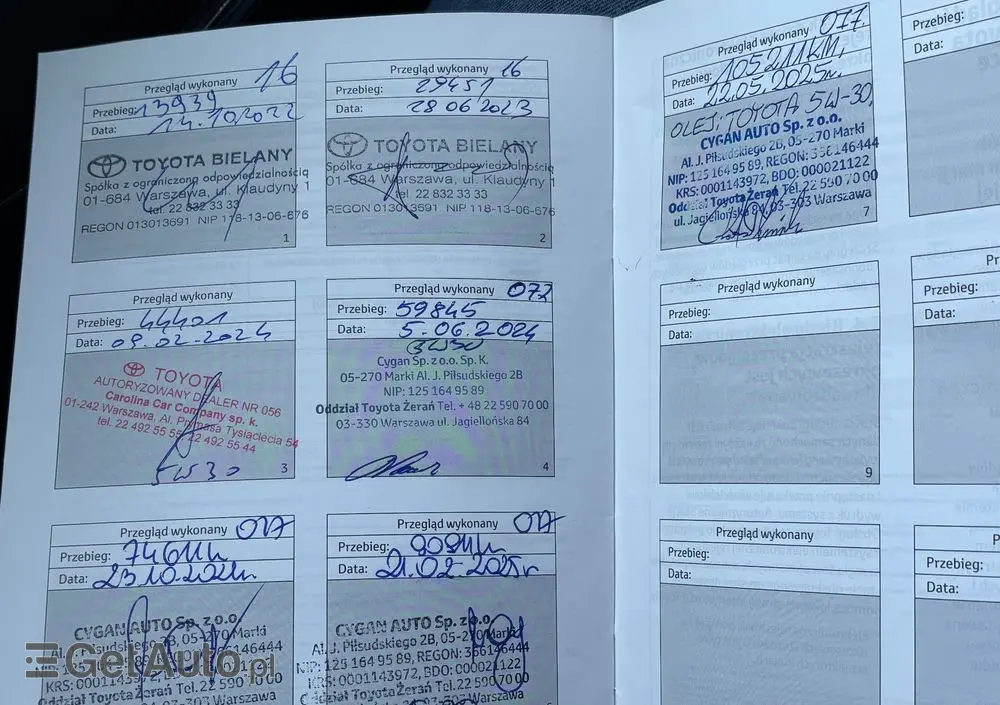 Przegląd wykonany 16
Przebieg: 13939
Data: 14.10.2022
TOYOTA BIELANY
Spółka z ograniczoną odpowiedzialnością
01-684 Warszawa, ul. Klaudyny 1
tel. 22 832 33 33
REGON 013013691 NIP 118-13-06-676
1
Przegląd wykonany 16
Przebieg: 29451
Data: 28 06 2023
TOYOTA BIELANY
Spółka z ograniczoną odpowiedzialnością
01-684 Warszawa, ul. Klaudyny 1
tel. 22 832 33 33
REGON 013013691 NIP 118-13-06-676
2
Przegląd wykonany
Przebieg: 44401
Data: 09.02.2024
TOYOTA
AUTORYZOWANY DEALER NR 056
Carolina Car Company sp. k.
01-242 Warszawa, Al. Prymasa Tysiąclecia 54
tel. 22 492 55 55, 22 492 55 44
5W30
3
Przegląd wykonany 072
Przebieg: 59845
Data: 5.06.2024
5W30
Cygan Sp. z o.o. Sp. K.
05-270 Marki Al. J. Piłsudskiego 2B
NIP: 125 164 95 89
Oddział Toyota Żerań Tel. + 48 22 590 70 00
03-330 Warszawa ul. Jagiellońska 84
4
Przegląd wykonany 017
Przebieg:
Data: 23.10.2024r.
CYGAN AUTO Sp. z o.o.
Al. J. Piłsudskiego 2B, 05-270 Marki
KRS: 0001143972,
Oddział Toyota Żerań Tel. 22 590 70 00
03-303 Warszawa
Przegląd wykonany 017
Przebieg:
Data: 21.02.2025r
CYGAN AUTO Sp. z o.o.
Al. J. Piłsudskiego 2B, 05-270 Marki
NIP: 125 164 95 89, REGON: 366146444
KRS: 0001143972, BDO: 000021122
Oddział Toyota Żerań Tel. 22 590 70 00
03-303 Warszawa
GetAuto.pl
Przegląd wykonany 077
Przebieg: 105211KM,
Data: 22.05.2025r.
OLEJ: TOYOTA 5W-30,
CYGAN AUTO Sp. z o.o.
Al. J. Piłsudskiego 2B, 05-270 Marki
NIP: 125 164 95 89, REGON: 366146444
KRS: 0001143972, BDO: 000021122
Oddział Toyota Żerań Tel. 22 590 70 00
ul. Jagiellońska 84, 03-303 Warszawa
7
Przegląd wykonany
Przebieg:
Data:
9
Przegląd wykonany
Przebieg:
Data:
Przebieg:
Data:
Przebieg:
Data:
Przebieg:
Data: